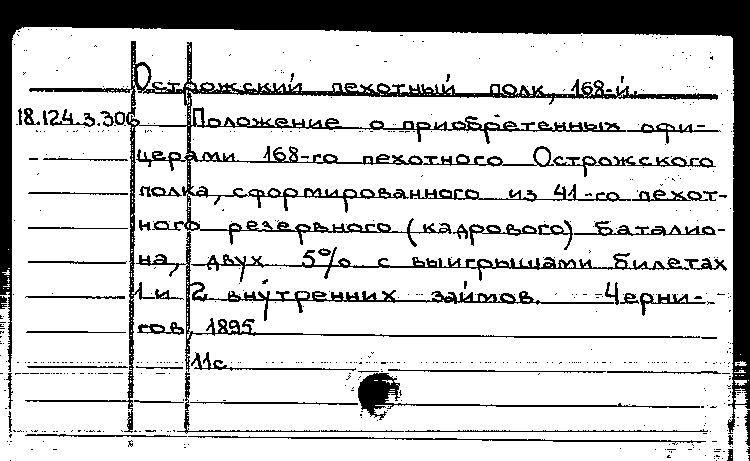 Острожский пехотный полк, 168-й.
18.124.3.306 Положение о приобретенных офи-
церами 168-го пехотного Острожского
полка, сформированного из 41-го пехот-
ного резервного (кадрового) баталио-
на, двух 5% с выигрышами билетах
1 и 2 внутренних займов. Черни-
гов, 1895.
11с.